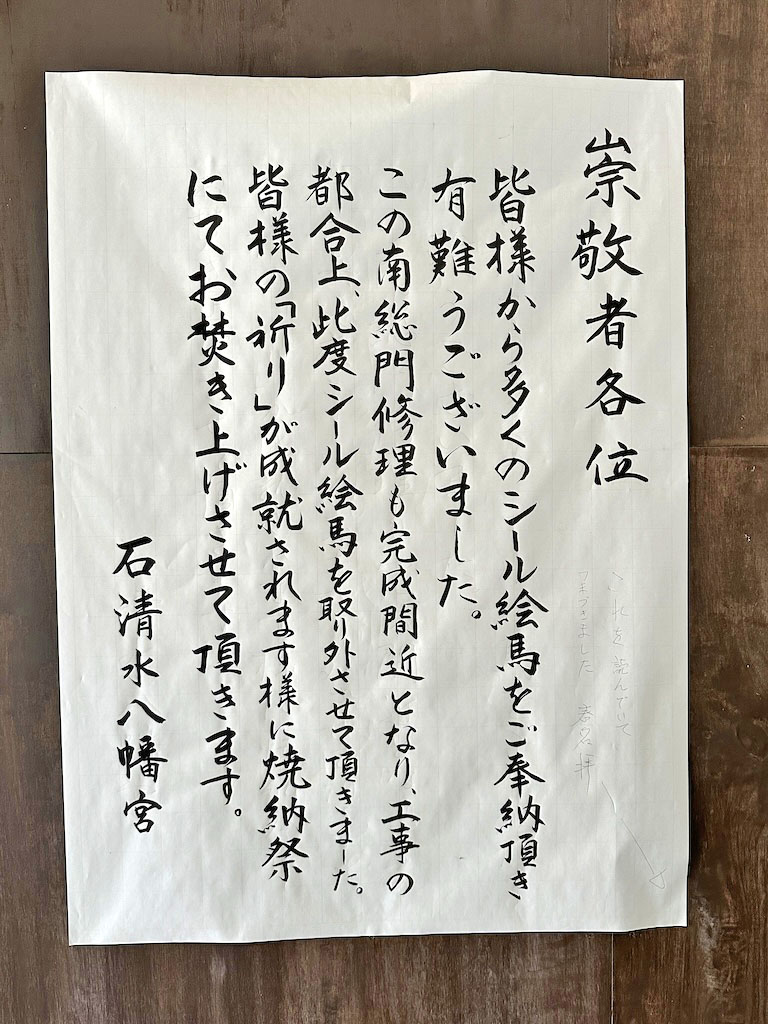 崇敬者各位
これを読んでいて
つまづきました
皆様から多くのシール絵馬をご奉納頂き
有難うございました。
この南総門修理も完成間近となり、工事の
都合上、此度シール絵馬を取り外させて頂きました。
皆様の「祈り」が成就されます様に焼納祭
にてお焚き上げさせて頂きます。
石清水八幡宮